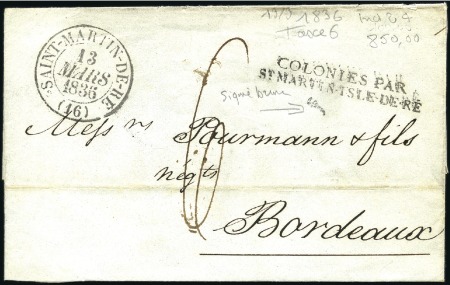 13/3 1836
Taxe 6
850,00
SAINT-MARTIN-DE-RE
13
MARS
1836
(16)
COLONIES PAR
ST MARTIN-ISLE-DE-RE
Signé brun
6
Mess rs Pourmann & fils
négts
Bordeaux